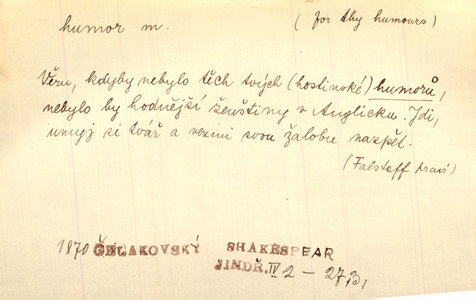 humor m. ( for thy humours )
Věru, kdyby nebylo těch tvých (hostinské) humorů,
nebylo by hodnější ženštiny v Anglicku. Jdi,
umyj si tvář a vezmi svou žalobu nazpět.
(Falstaff praví)
1870 ČELAKOVSKÝ SHAKESPEAR
JINDŘ. IV 2 – 27